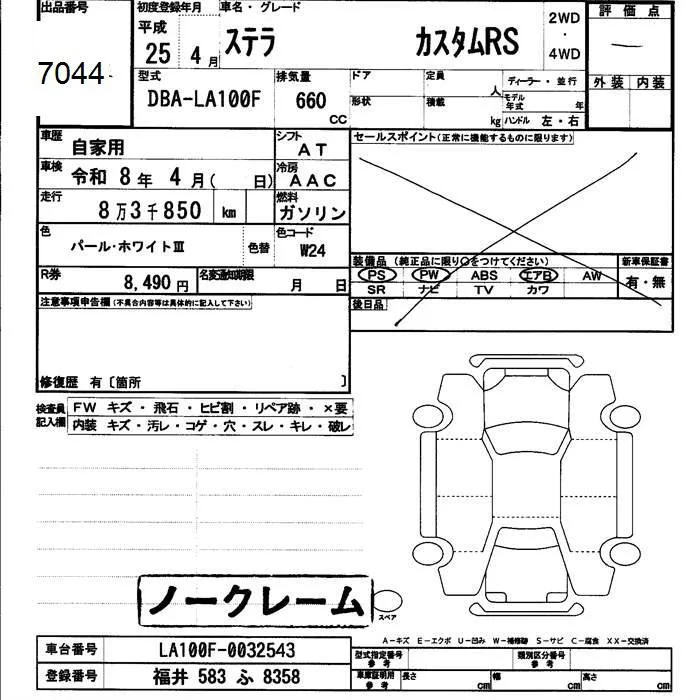 出品番号
7044
初度登録年月
平成
25 4月
車名・グレード
ステラ カスタムRS
2WD
・
4WD
評価点
外装 内装
型式
DBA-LA100F
排気量
660
CC
ドア
定員
人
形状
積載
kg
ディーラー・並行
モデル
年式
年
ハンドル 左・右
車歴
自家用
シフト
AT
セールスポイント(正常に機能するものに限ります)
車検
令和 8年 4月( 日)
冷房
AAC
走行
8万3千850 km
燃料
ガソリン
色
パール・ホワイトⅢ
色替
色コード
W24
装備品 (純正品に限り○をつけてください)
新車保証書
PS PW ABS エアB AW
SR ナビ TV カワ
有・無
R券
8,490円
名変通知期限
月 日
後日品
注意事項申告欄(不具合内容等は具体的に記入して下さい)
修復歴 有〔箇所 〕
検査員
記入欄
FW キズ・飛石・ヒビ割・リペア跡・×要
内装 キズ・汚レ・コゲ・穴・スレ・キレ・破レ
ノークレーム
スペア
A-キズ E-エクボ U-凹み W-補修跡 S-サビ C-腐食 XX-交換済
車台番号
LA100F-0032543
型式指定番号
参考
類別区分番号
参考
登録番号
福井 583 ふ 8358
車庫証明用
参考
長さ
cm
幅
cm
高さ
cm